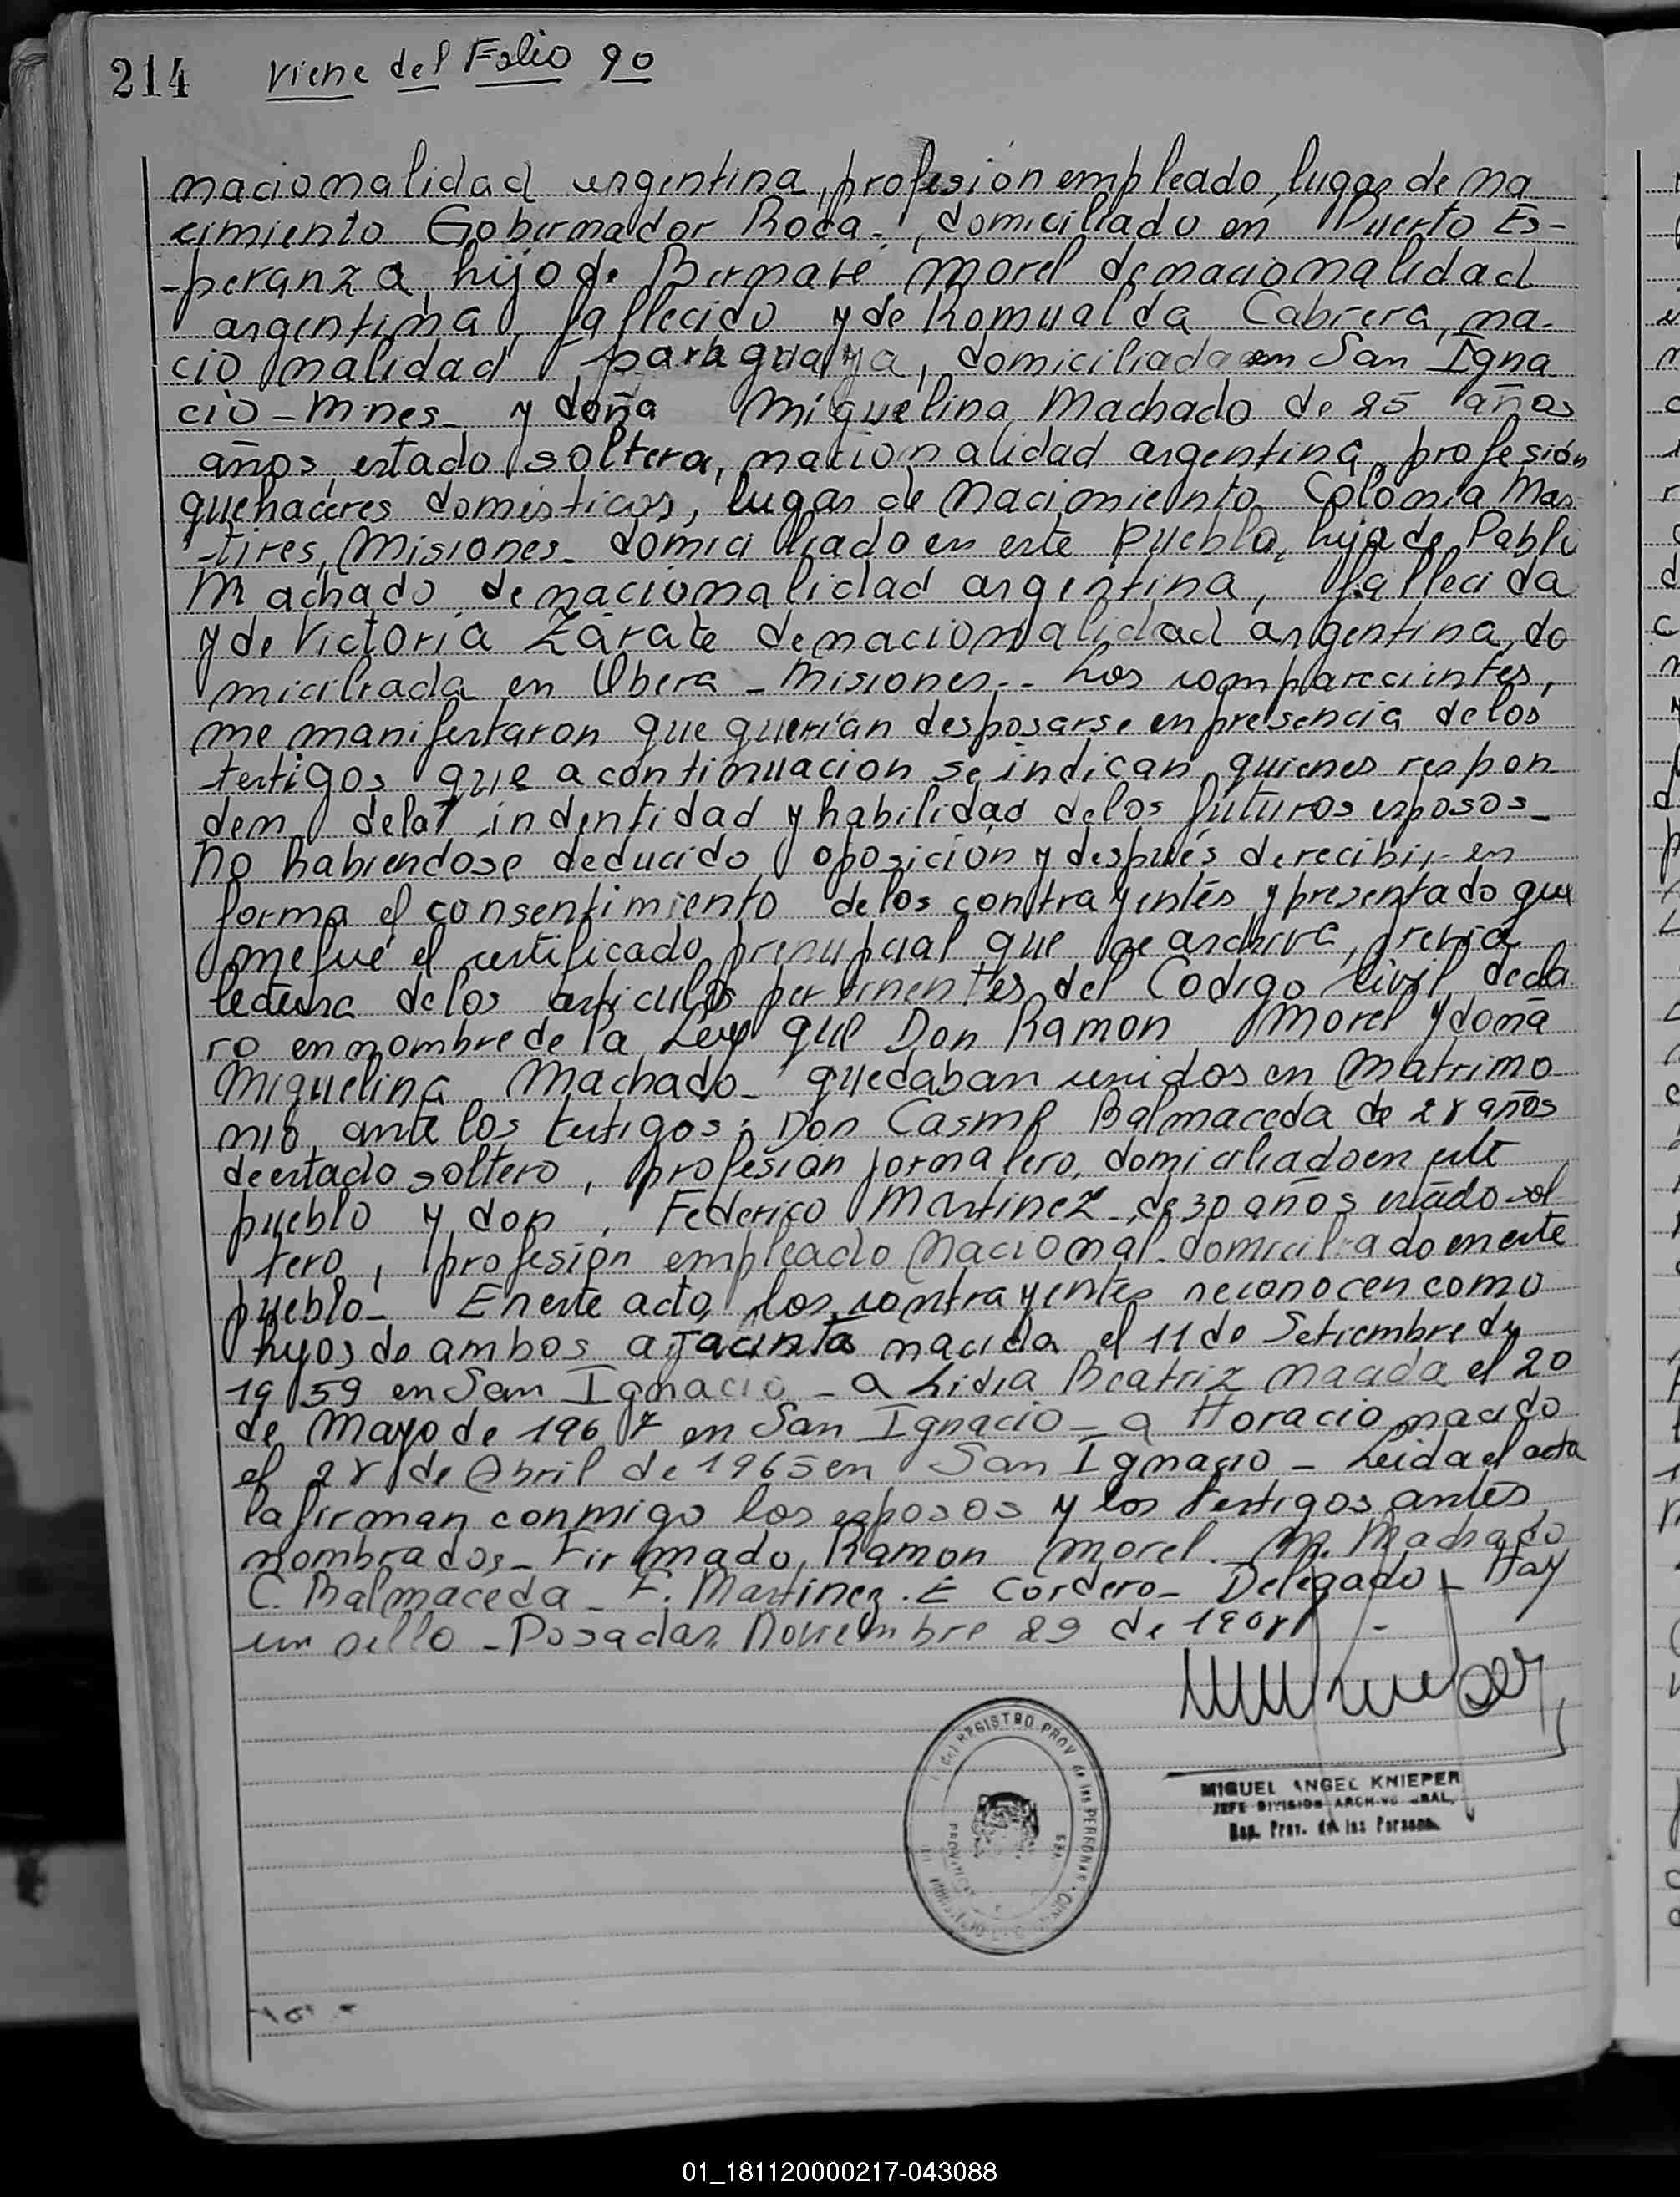 214 Viene del Folio 90
nacionalidad argentina, profesión empleado, lugar de na
cimiento Gobernador Roca-, domiciliado en Puerto Es-
-peranza, hijo de Bernavé Morel de nacionalidad
argentina, fallecido y de Romualda Cabrera, na-
cionalidad paraguaya, domiciliada en San Igna
cio - Mnes- y doña Miguelina Machado de 25 años
años, estado soltera, nacionalidad argentina, profesión
quehaceres domésticos, lugar de nacimiento Colonia Mar
-tires, Misiones- domiciliado en este pueblo, hija de Pablo
Machado de nacionalidad argentina, fallecida
y de Victoria Zárate de nacionalidad argentina, do
miciliada en Obera - Misiones-- Los comparecientes,
me manifestaron que querían desposarse en presencia de los
testigos que a continuacion se indican, quienes respon
den de la indentidad y habilidad de los futuros esposos-
No habiendose deducido oposición y después de recibir en
forma el consentimiento de los contrayentes y presentado que
me fué el certificado prenupcial que se archiva, previa
lectura de los articulos pertinentes del Codigo Civil decla
ro en nombre de la Ley que Don Ramon Morel y doña
Miguelina Machado- quedaban unidos en Matrimo
nio, ante los testigos: Don Balmaceda de 28 años
de estado soltero, profesión jornalero, domiciliado en este
pueblo y don, Federico Martinez-, de 30 años estado sol
tero, profesión empleado Nacional- domiciliado en este
pueblo- En este acto, los contrayentes reconocen como
hijos de ambos a Jacinta nacida el 11 de Setiembre de
1959 en San Ignacio - a Lidia Beatriz nacida el 20
de Mayo de en San Ignacio - a Horacio nacido
el 28 de Abril de 1965 en San Ignacio - Leida el acta
la firman conmigo los esposos y los testigos antes
nombrados- Firmado, Ramon Morel- M. Machado
C. Balmaceda - F. Martinez. E Cordero- Delegado - Hay
un sello - Posadas Noviembre 29 de
REGISTRO PROV de las PERSONAS
MIGUEL ANGEL KNIEPER
JEFE DIVISION ARCHIVO GRAL.
Reg. Prov. de las Personas
01_181120000217-043088